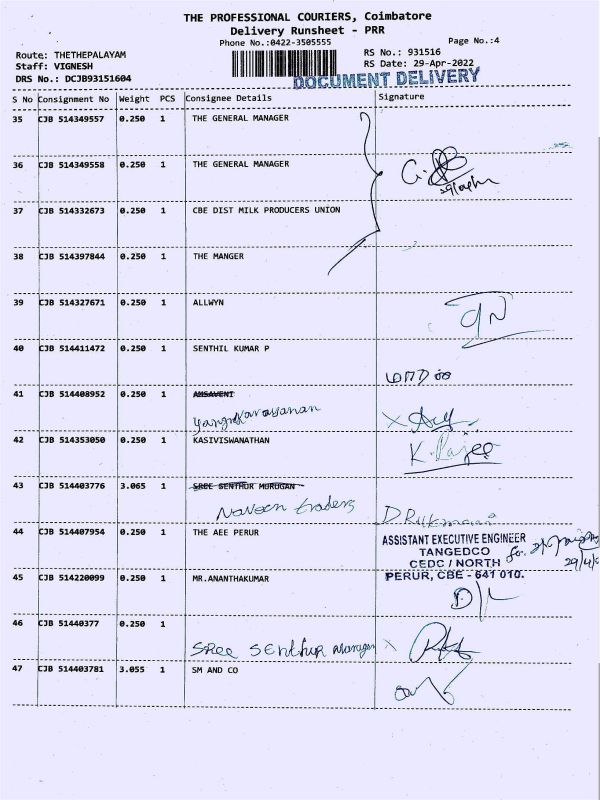 THE PROFESSIONAL COURIERS, Coimbatore
Delivery Runsheet - PRR
Phone No.:0422-3505555
Page No.:4
Route: THETHEPALAYAM
RS No.: 931516
Staff: VIGNESH
RS Date: 29-Apr-2022
DRS No.: DCJB93151604
DOCUMENT DELIVERY
S No Consignment No Weight PCS Consignee Details Signature
35 CJB 514349557 0.250 1 THE GENERAL MANAGER
36 CJB 514349558 0.250 1 THE GENERAL MANAGER
37 CJB 514332673 0.250 1 CBE DIST MILK PRODUCERS UNION
38 CJB 514397844 0.250 1 THE MANGER
39 CJB 514327671 0.250 1 ALLWYN
40 CJB 514411472 0.250 1 SENTHIL KUMAR P
41 CJB 514408952 0.250 1 AMSAVENI
42 CJB 514353050 0.250 1 KASIVISWANATHAN
K. Rajee
43 CJB 514403776 3.065 1 SREE SENTHUR MURUGAN
Naveen traders
D Rukmani
44 CJB 514407954 0.250 1 THE AEE PERUR
ASSISTANT EXECUTIVE ENGINEER
TANGEDCO
CEDC / NORTH
PERUR, CBE - 641 010.
for
45 CJB 514220099 0.250 1 MR.ANANTHAKUMAR
46 CJB 51440377 0.250 1
Sree Senthur
47 CJB 514403781 3.055 1 SM AND CO